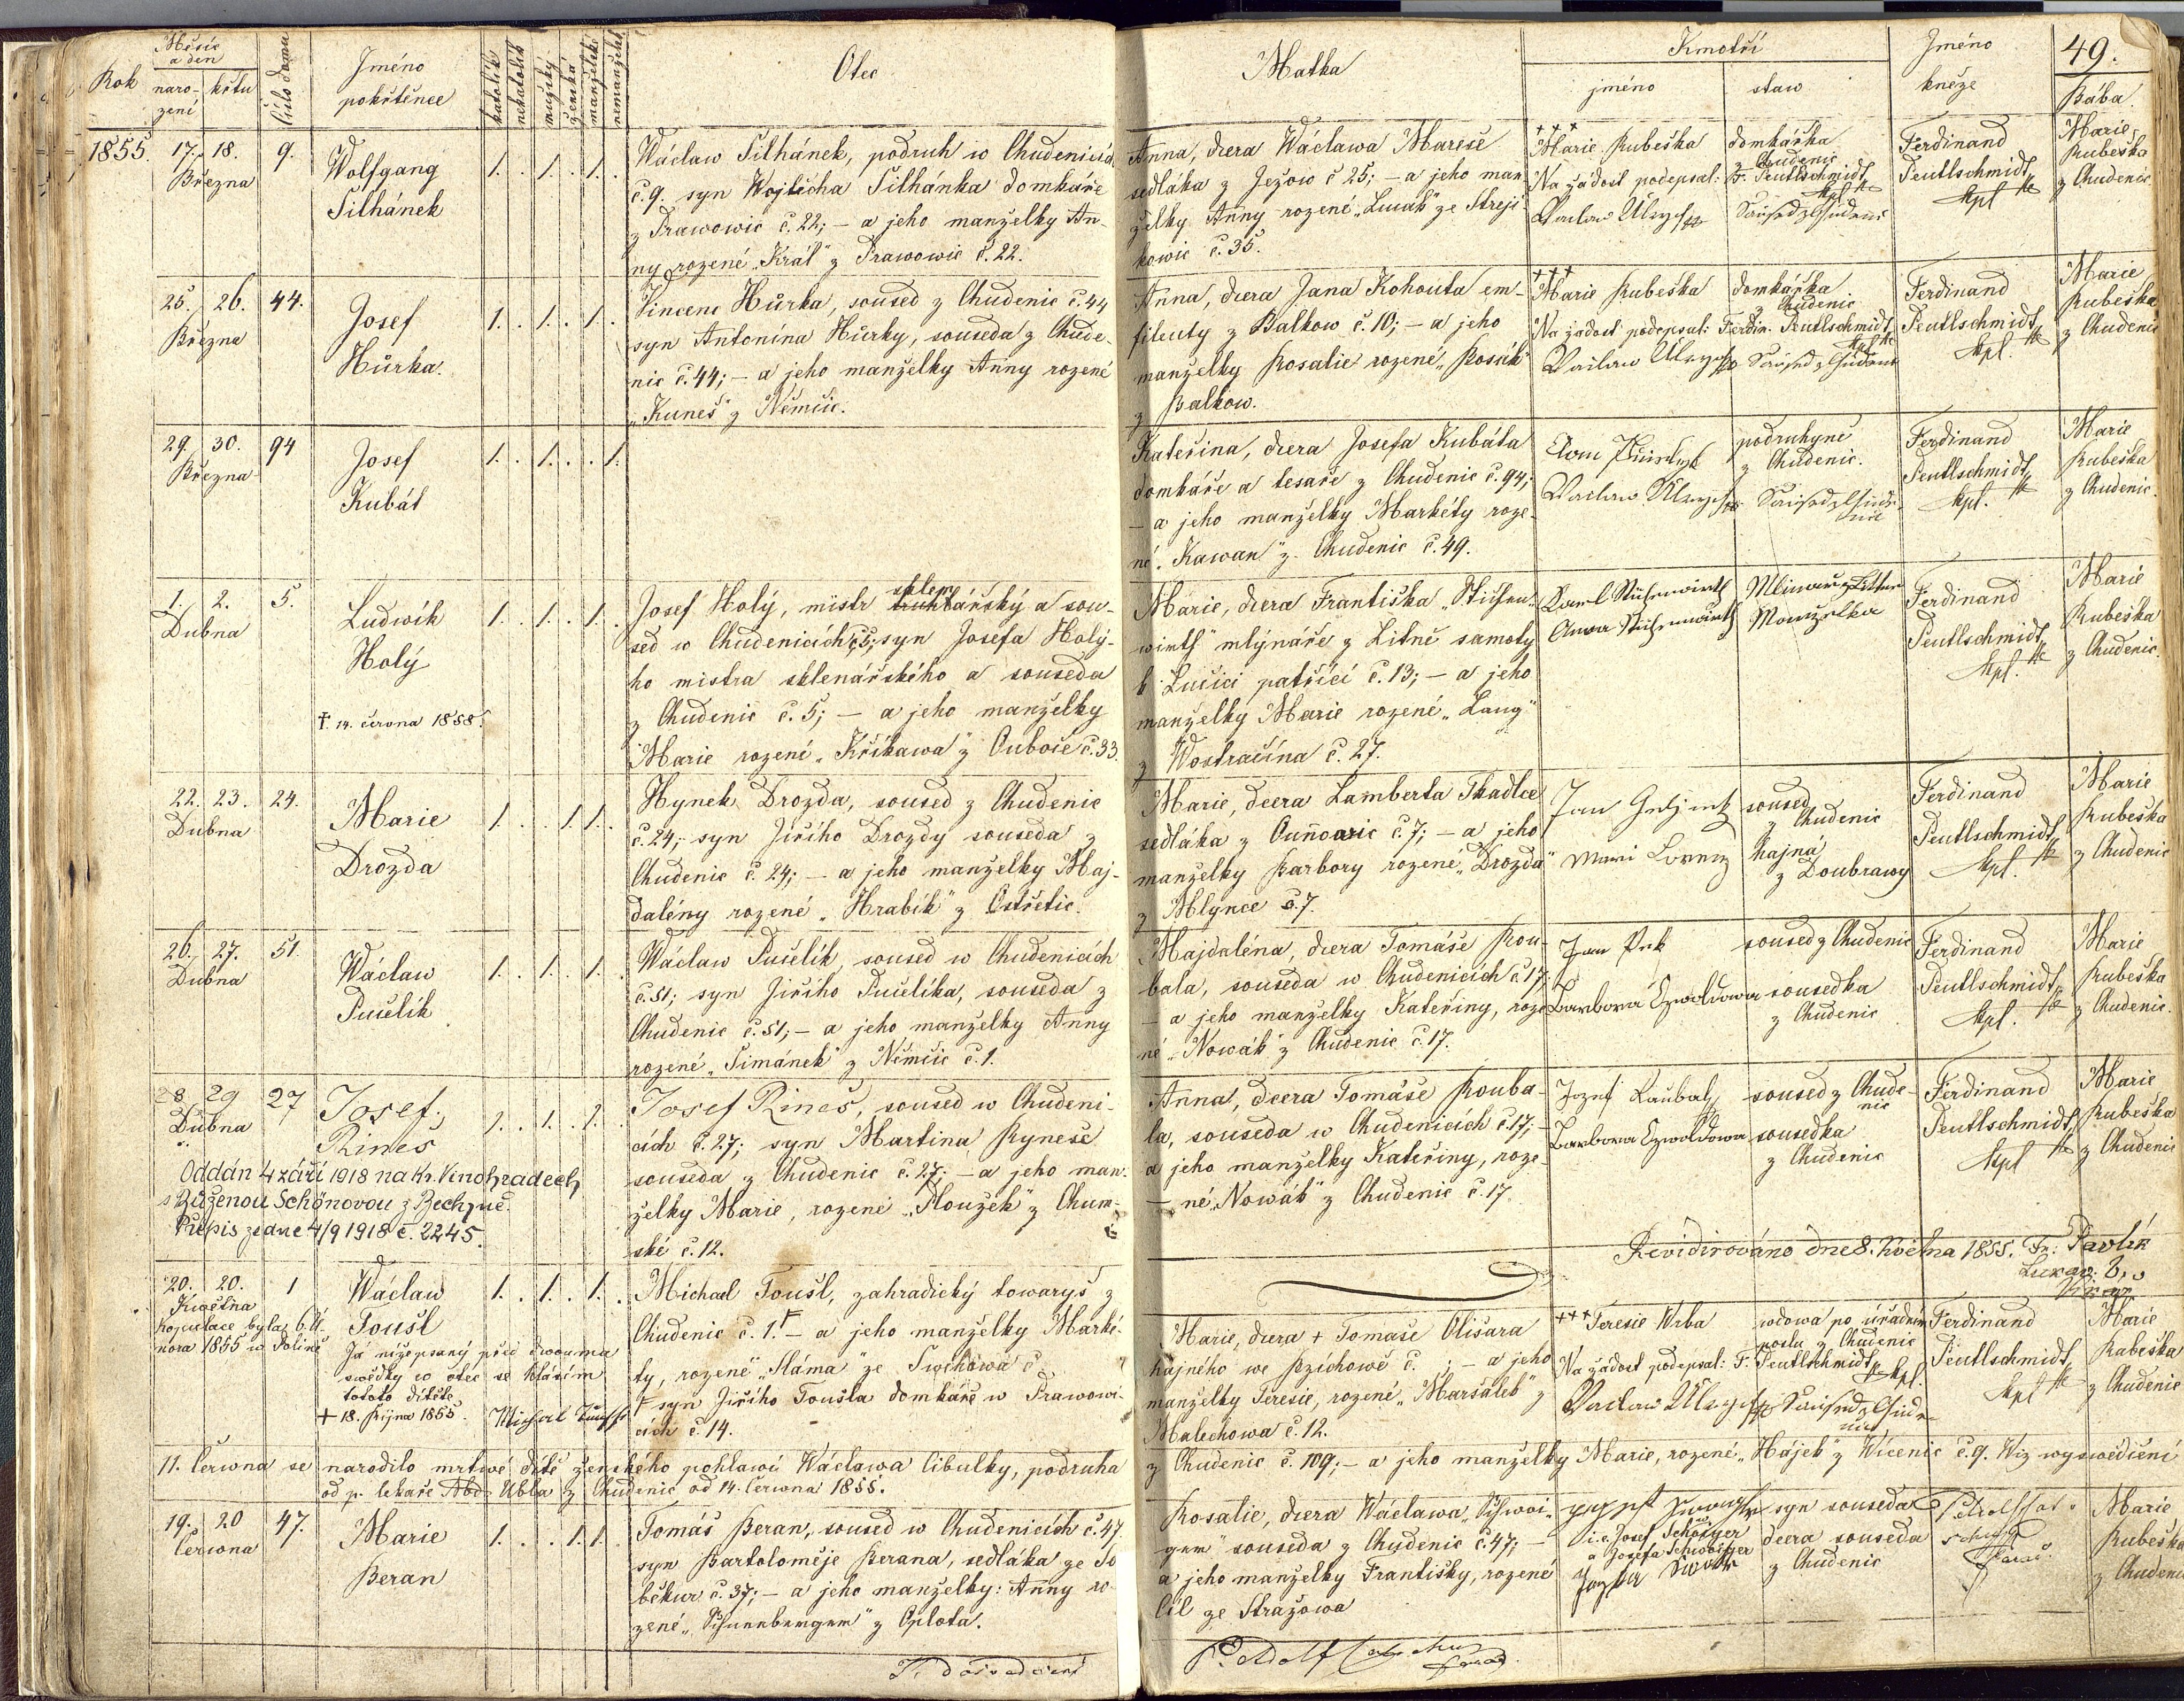 Rok
Měsíc
a den
naro-
zení
křtu
Číslo domu
Jméno
pokřtěnce
katolík
nekatolík
mužský
ženská
manželské
nemanželské
Otec
Matka
Kmotři
jméno
staw
Jméno
kněze
49.
Bába.
1855.
17. 18.
Března
9.
Wolfgang
Silhánek
1. . 1. . 1. .
Wáclaw Silhánek, podruh w Chudenicích
č. 9. syn Wojtěcha Silhánka domkáře
z Prawowic č. 22; – a jeho manželky An-
ny rozené „Král" z Prawowic č. 22.
Anna, dcera Wáclawa Mareše
sedláka z Ježow č 25; – a jeho man
želky Anny rozené „Lucák" ze Střeji
kowic č. 35.
+++
Marie Rubeška
Na žádost podepsal:
domkářka
z Chudenic
F. Peutlschmidt
kpl.
Ferdinand
Peutlschmidt
kpl
Marie
Rubeška
z Chudenic
25. 26.
Března
44.
Josef
Hůrka.
1. . 1. . 1. .
Vincenc Hůrka, soused z Chudenic č. 44
syn Antonína Hůrky, souseda z Chude-
nic č. 44; – a jeho manželky Anny rozené
„Kuneš" z Němčic.
Anna, dcera Jana Kohouta em-
fileuty z Balkow č. 10; – a jeho
manželky Rosalie rozené „Kosák"
z Balkow.
+++
Marie Rubeška
Na žádost podepsal: Ferdin. Peutlschmidt
kpl
domkářka
Chudenic
Ferdinand
Peutlschmidt
kpl.
Marie
Rubeška
z Chudenic
29. 30.
Března
94
Josef
Kubát
1. . 1. . . 1.
Kateřina, dcera Josefa Kubáta
domkáře a tesaře z Chudenic č. 94;
– a jeho manželky Markéty roze-
né „Kawan" z Chudenic č. 49.
podruhyně
z Chudenic.
Ferdinand
Peutlschmidt
kpl.
Marie
Rubeška
z Chudenic.
1. 2.
Dubna
5.
Ludwík
Holý
† 14. června 1858.
1. . 1. . 1. .
Josef Holý, mistr truhlářský a sou-
sklen
sed w Chudenicích č. 5; syn Josefa Holý-
ho mistra sklenářského a souseda
z Chudenic č. 5; – a jeho manželky
Marie rozené „Křikawa" z Ouboče č. 33.
Marie, dcera Františka „Stichen-
wirth" mlýnáře z Litně samoty
k Lučici patřící č. 13; – a jeho
manželky Marie rozené „Lang"
z Wostračína č. 27.
Karl Stichenwirth
Anna Stichenwirth
Manželka
Ferdinand
Peutlschmidt
kpl.
Marie
Rubeška
z Chudenic.
22. 23.
Dubna
24.
Marie
Drozda
1. . . 1. 1. .
Hynek Drozda, soused z Chudenic
č. 24; syn Jiřího Drozdy souseda z
Chudenic č. 24; – a jeho manželky Maj-
dalény rozené „Hrabík" z Ostřetic.
Marie, dcera Lamberta Tkadlce
sedláka z Ouňowic č. 7; – a jeho
manželky Barbory rozené „Drozda"
z Mlynce č. 7.
soused
z Chudenic
hajná
z Doubrawy
Ferdinand
Peutlschmidt
kpl.
Marie
Rubeška
z Chudenic
26. 27.
Dubna
51.
Wáclaw
Pučelík
1. . 1. . 1. .
Wáclaw Pučelík, soused w Chudenicích
č. 51; syn Jiřího Pučelíka, souseda z
Chudenic č. 51; – a jeho manželky Anny
rozené „Šimánek" z Němčic č. 1.
Majdaléna, dcera Tomáše Rou-
bala, souseda w Chudenicích č 17;
– a jeho manželky Kateřiny, roze-
né „Nowák" z Chudenic č. 17.
Jan Prk
Barbora Ezwaldowa
soused z Chudenic
sousedka
z Chudenic
Ferdinand
Peutlschmidt
kpl.
Marie
Rubeška
z Chudenic.
28 29
Dubna
27
Josef.
Rineš
1. . 1. . 1. .
Oddán 4 září 1918 na Kr. Vinohradech
s Růženou Schönovou z Bechyně.
Přípis ze dne 4/9 1918 č. 2245.
Josef Rineš, soused w Chudeni-
cích č. 27; syn Martina Ryneše
souseda z Chudenic č. 27; – a jeho man-
želky Marie, rozené „Ploužek" z Chum-
ské č. 12.
Anna, dcera Tomáše Rouba-
la, souseda w Chudenicích č. 17; –
a jeho manželky Kateřiny, roze-
– né „Nowák" z Chudenic č. 17.
Jozef Raubal
Barbora Ezwaldowa
soused z Chude-
nic
sousedka
z Chudenic
Ferdinand
Peutlschmidt
kpl
Marie
Rubeška
z Chudenic
Revidirováno dne 8. Května 1855. Fr. Pavlík
20. 20.
Května
1
Wáclaw
Toušl
1. . 1. . 1. .
Kopulace byla 6. Ú-
nora 1855 w Polině
Já nížepsaný před dwouma
swědky co otec se hlásím
tohoto dítěte
+ 18. Října 1855.
Michael Toušl, zahradický towaryš z
Chudenic č. 1. – a jeho manželky Marké-
ty, rozené „Sláma" ze Swrchowa č.
syn Jiřího Toušla domkáře w Prawowi-
cích č. 14.
Marie, dcera + Tomáše Olišara
hajného we Bzichowě č. ; – a jeho
manželky Teresie, rozené „Maršálek" z
Malechowa č. 12.
+++ Teresie Wrba
Na žádost podepsal: F. Peutlschmidt
kpl.
wdowa po úřadním
poslu z Chudenic
Ferdinand
Peutlschmidt
kpl
Marie
Rubeška
z Chudenic
11. Června se narodilo mrtwé dítě ženského pohlawí Wáclawa Cibulky, podruha
z Chudenic č. 109; – a jeho manželky Marie, rozené „Hájek" z Wícenic č. 9. Wiz wyswědčení
od p. lekaře Abd. Ubla z Chudenic od 14. Června 1855.
19. 20
Června
47.
Marie
Beran
1. . . 1. 1. .
Tomáš Beran, soused w Chudenicích č. 47.
syn Bartoloměje Berana, sedláka ze So
běkur č. 37; – a jeho manželky: Anny ro-
zené „Schnneberger" z Oplota.
Rosalie, dcera Wáclawa „Schwai-
ger" souseda z Chudenic č. 47; –
a jeho manželky Františky, rozené
Cíl ze Stražowa
i. e. Josef Schwaiger
a Josefa Schwaiger
syn souseda
dcera souseda
z Chudenic
Marie
Rubeška
z Chudenic
P. Adolf